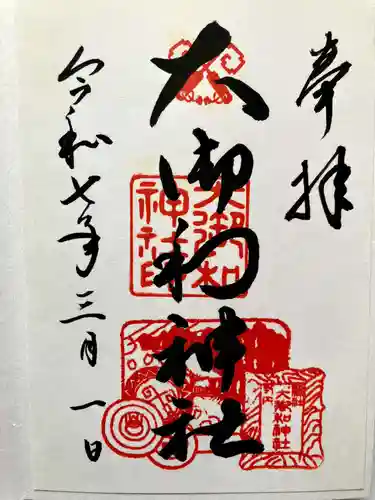 奉拝
大御和神社
大御和
神社印
大御和神社
令和七年三月一日